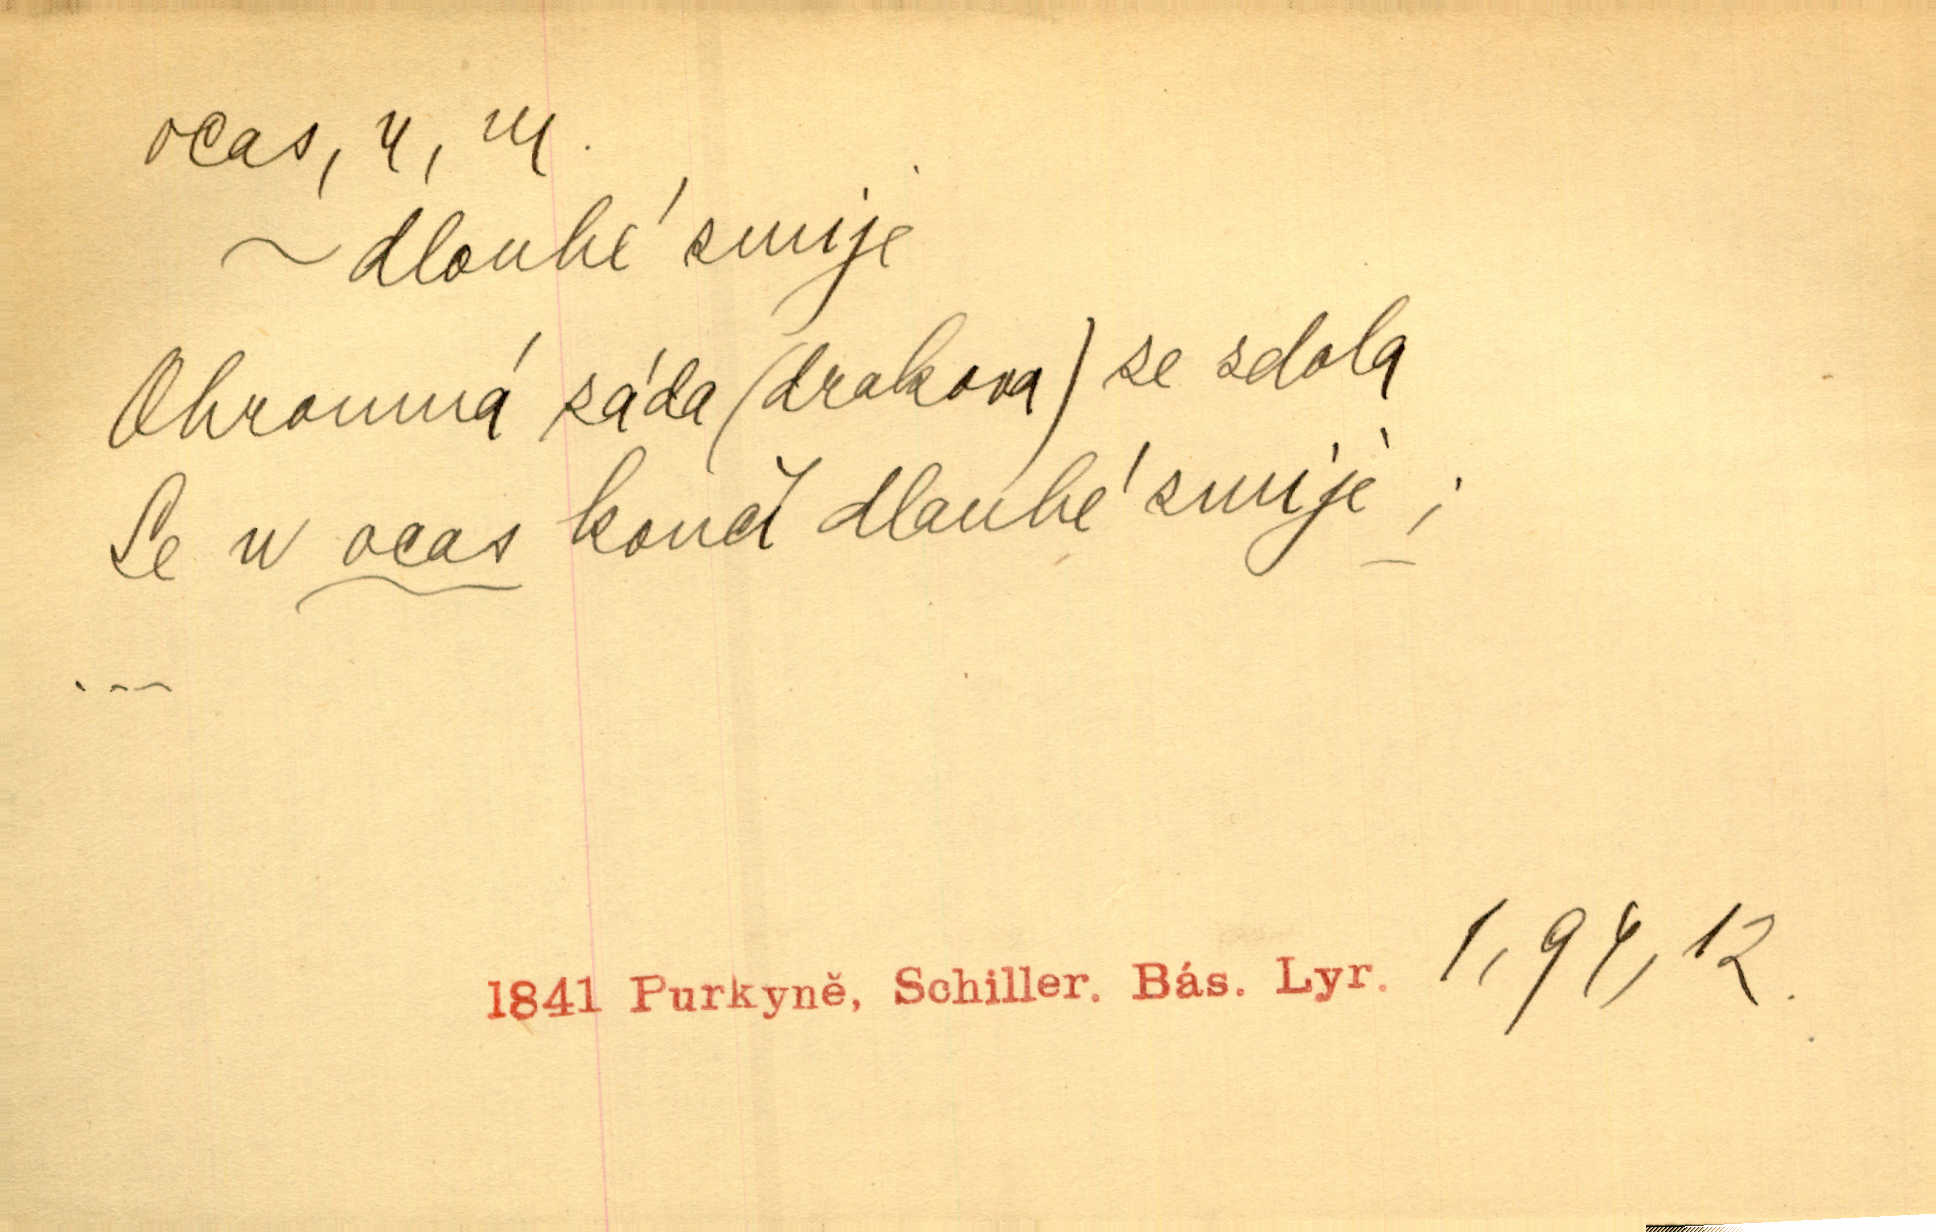 ocas, u, m.
~ dlouhé zmije
Ohromná záda (drakova) se zdola
Se w ocas končí dlauhé zmije;
. - -
1841 Purkyně, Schiller. Bás. Lyr. 1, 94, 12.